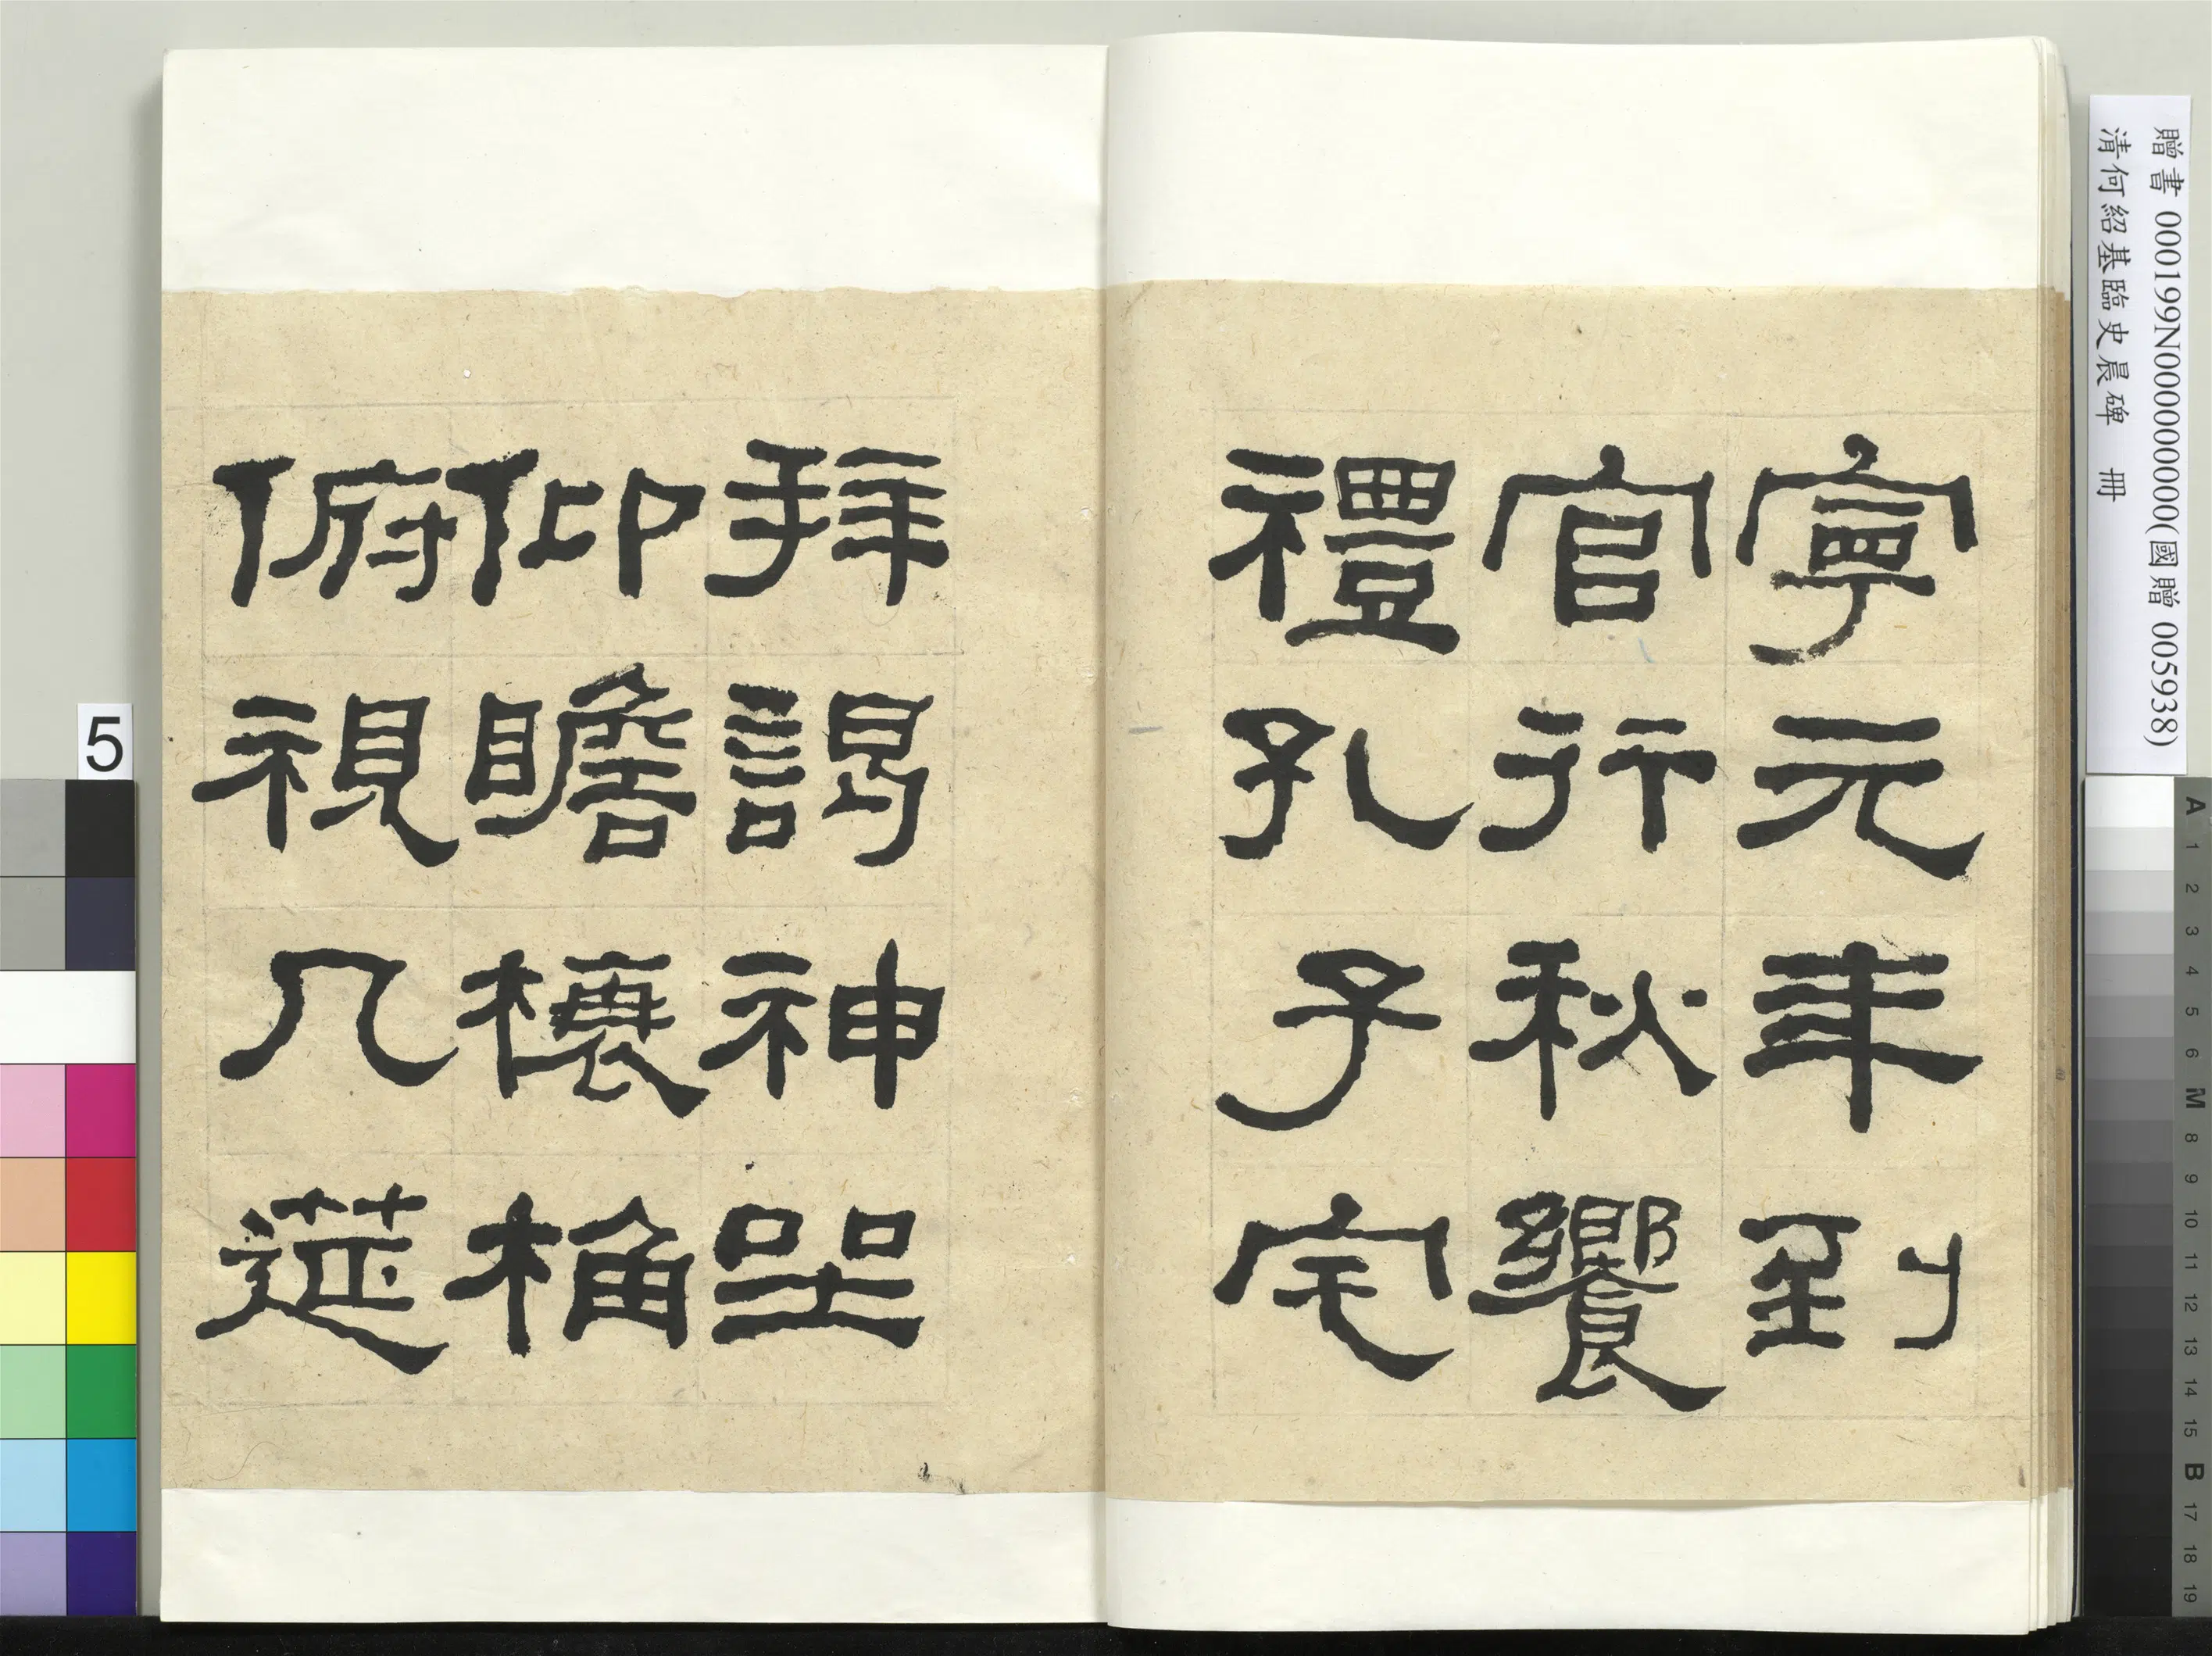 寧元年到
官行秋饗
禮孔子宅
拜謁神坐
仰瞻榱桷
俯視几筵
贈書 000199N000000000(國贈 005938)
清何紹基臨史晨碑 冊
5
A 1 2 3 4 5 6 M 8 9 10 11 12 13 14 15 B 17 18 19